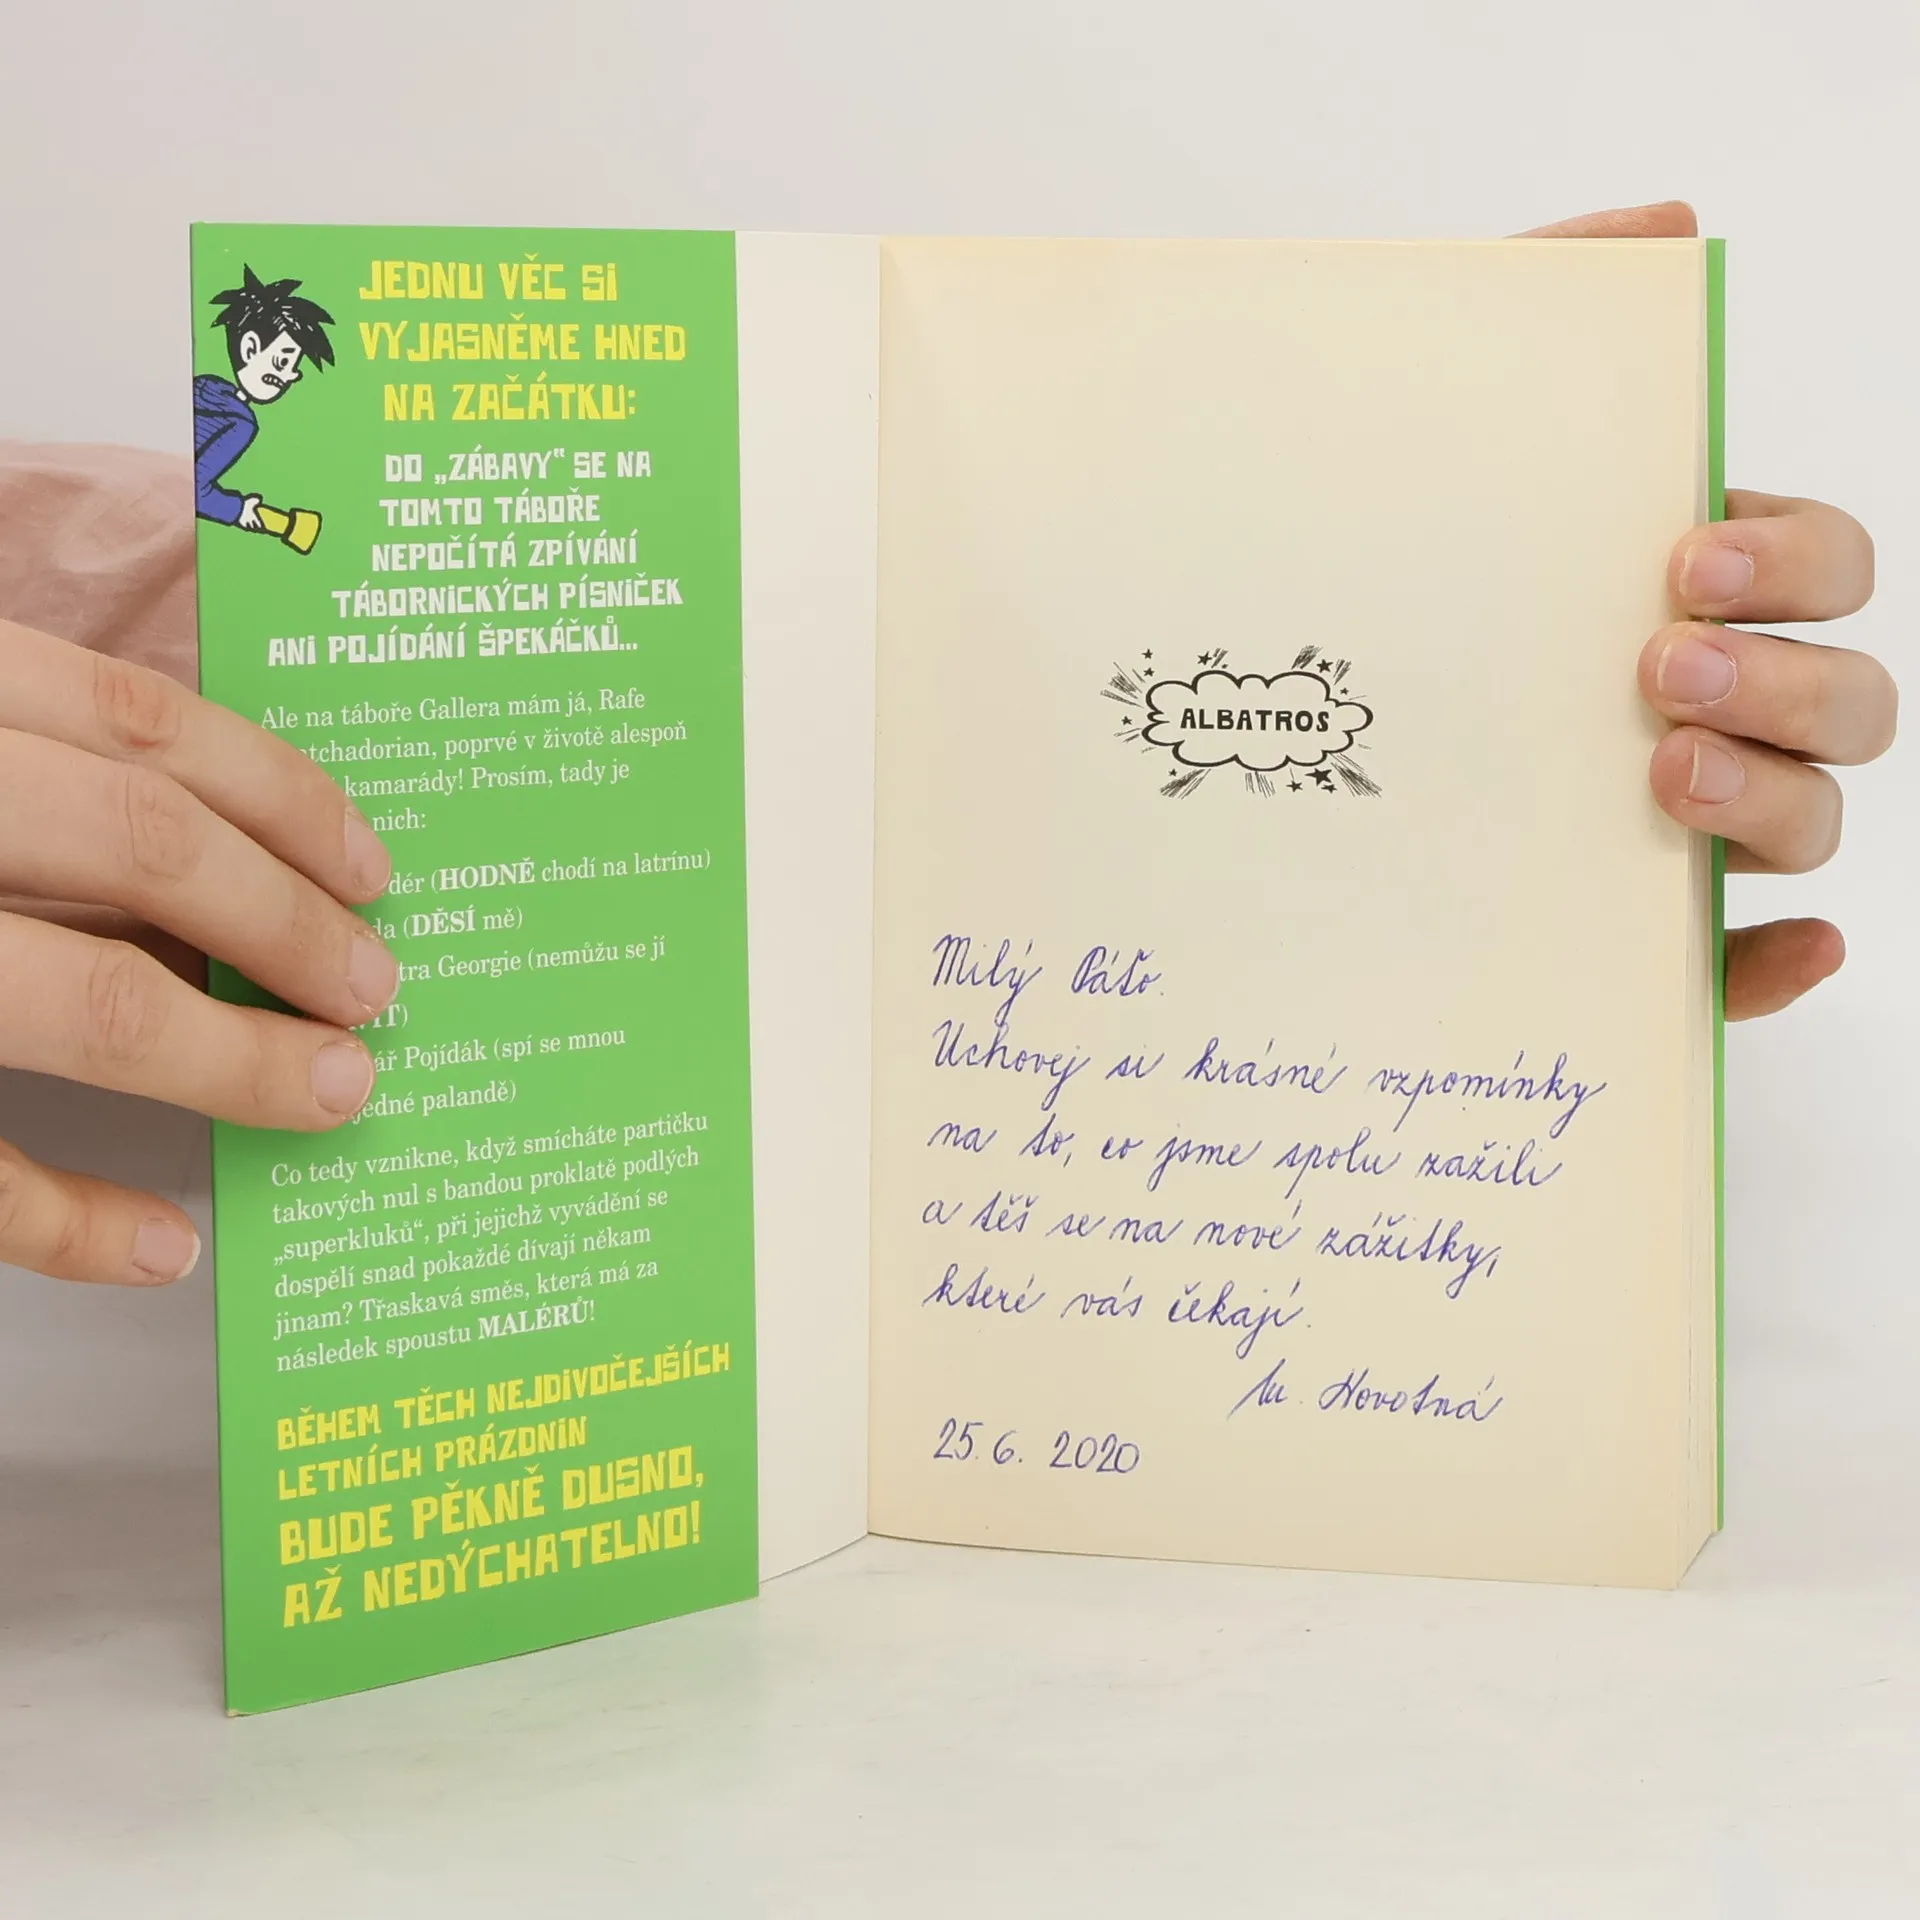 JEDNU VĚC SI
VYJASNĚME HNED
NA ZAČÁTKU:
DO „ZÁBAVY“ SE NA
TOMTO TÁBOŘE
NEPOČÍTÁ ZPÍVÁNÍ
TÁBORNICKÝCH PÍSNIČEK
ANI POJÍDÁNÍ ŠPEKÁČKŮ...
Ale na táboře Gallera mám já, Rafe
tchadorian, poprvé v životě alespoň
kamarády! Prosím, tady je
nich:
dér (HODNĚ chodí na latrínu)
da (DĚSÍ mě)
tra Georgie (nemůžu se jí
VIT)
ář Pojídák (spí se mnou
jedné palandě)
Co tedy vznikne, když smícháte partičku
takových nul s bandou proklatě podlých
„superkluků“, při jejichž vyvádění se
dospělí snad pokaždé dívají někam
jinam? Třaskavá směs, která má za
následek spoustu MALÉRŮ!
BĚHEM TĚCH NEJDIVOČEJŠÍCH
LETNÍCH PRÁZDNIN
BUDE PĚKNĚ DUSNO,
AŽ NEDÝCHATELNO!
ALBATROS
Milý Páťo.
Uchovej si krásné vzpomínky
na to, co jsme spolu zažili
a těš se na nové zážitky,
které vás čekají.
Novotná
25. 6. 2020